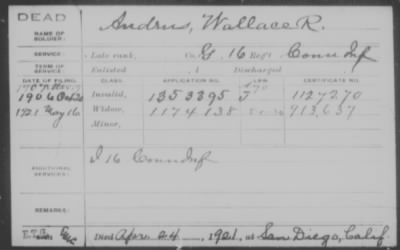 DEAD
NAME OF SOLDIER: Andrus, Wallace R.
SERVICE: Late rank, Co. G, 16 Reg't Conn Inf
TERM OF SERVICE: Enlisted , 1 Discharged , 1
DATE OF FILING. CLASS. APPLICATION NO. LAW. CERTIFICATE NO.
1906 Oct Invalid, 1353395 J 1127270
1921 May 16 Widow, 1174138 913,637
Minor,
ADDITIONAL SERVICES: I 16 Conn Inf
REMARKS:
Died Apr. 24, 1921, at San Diego, Calif.